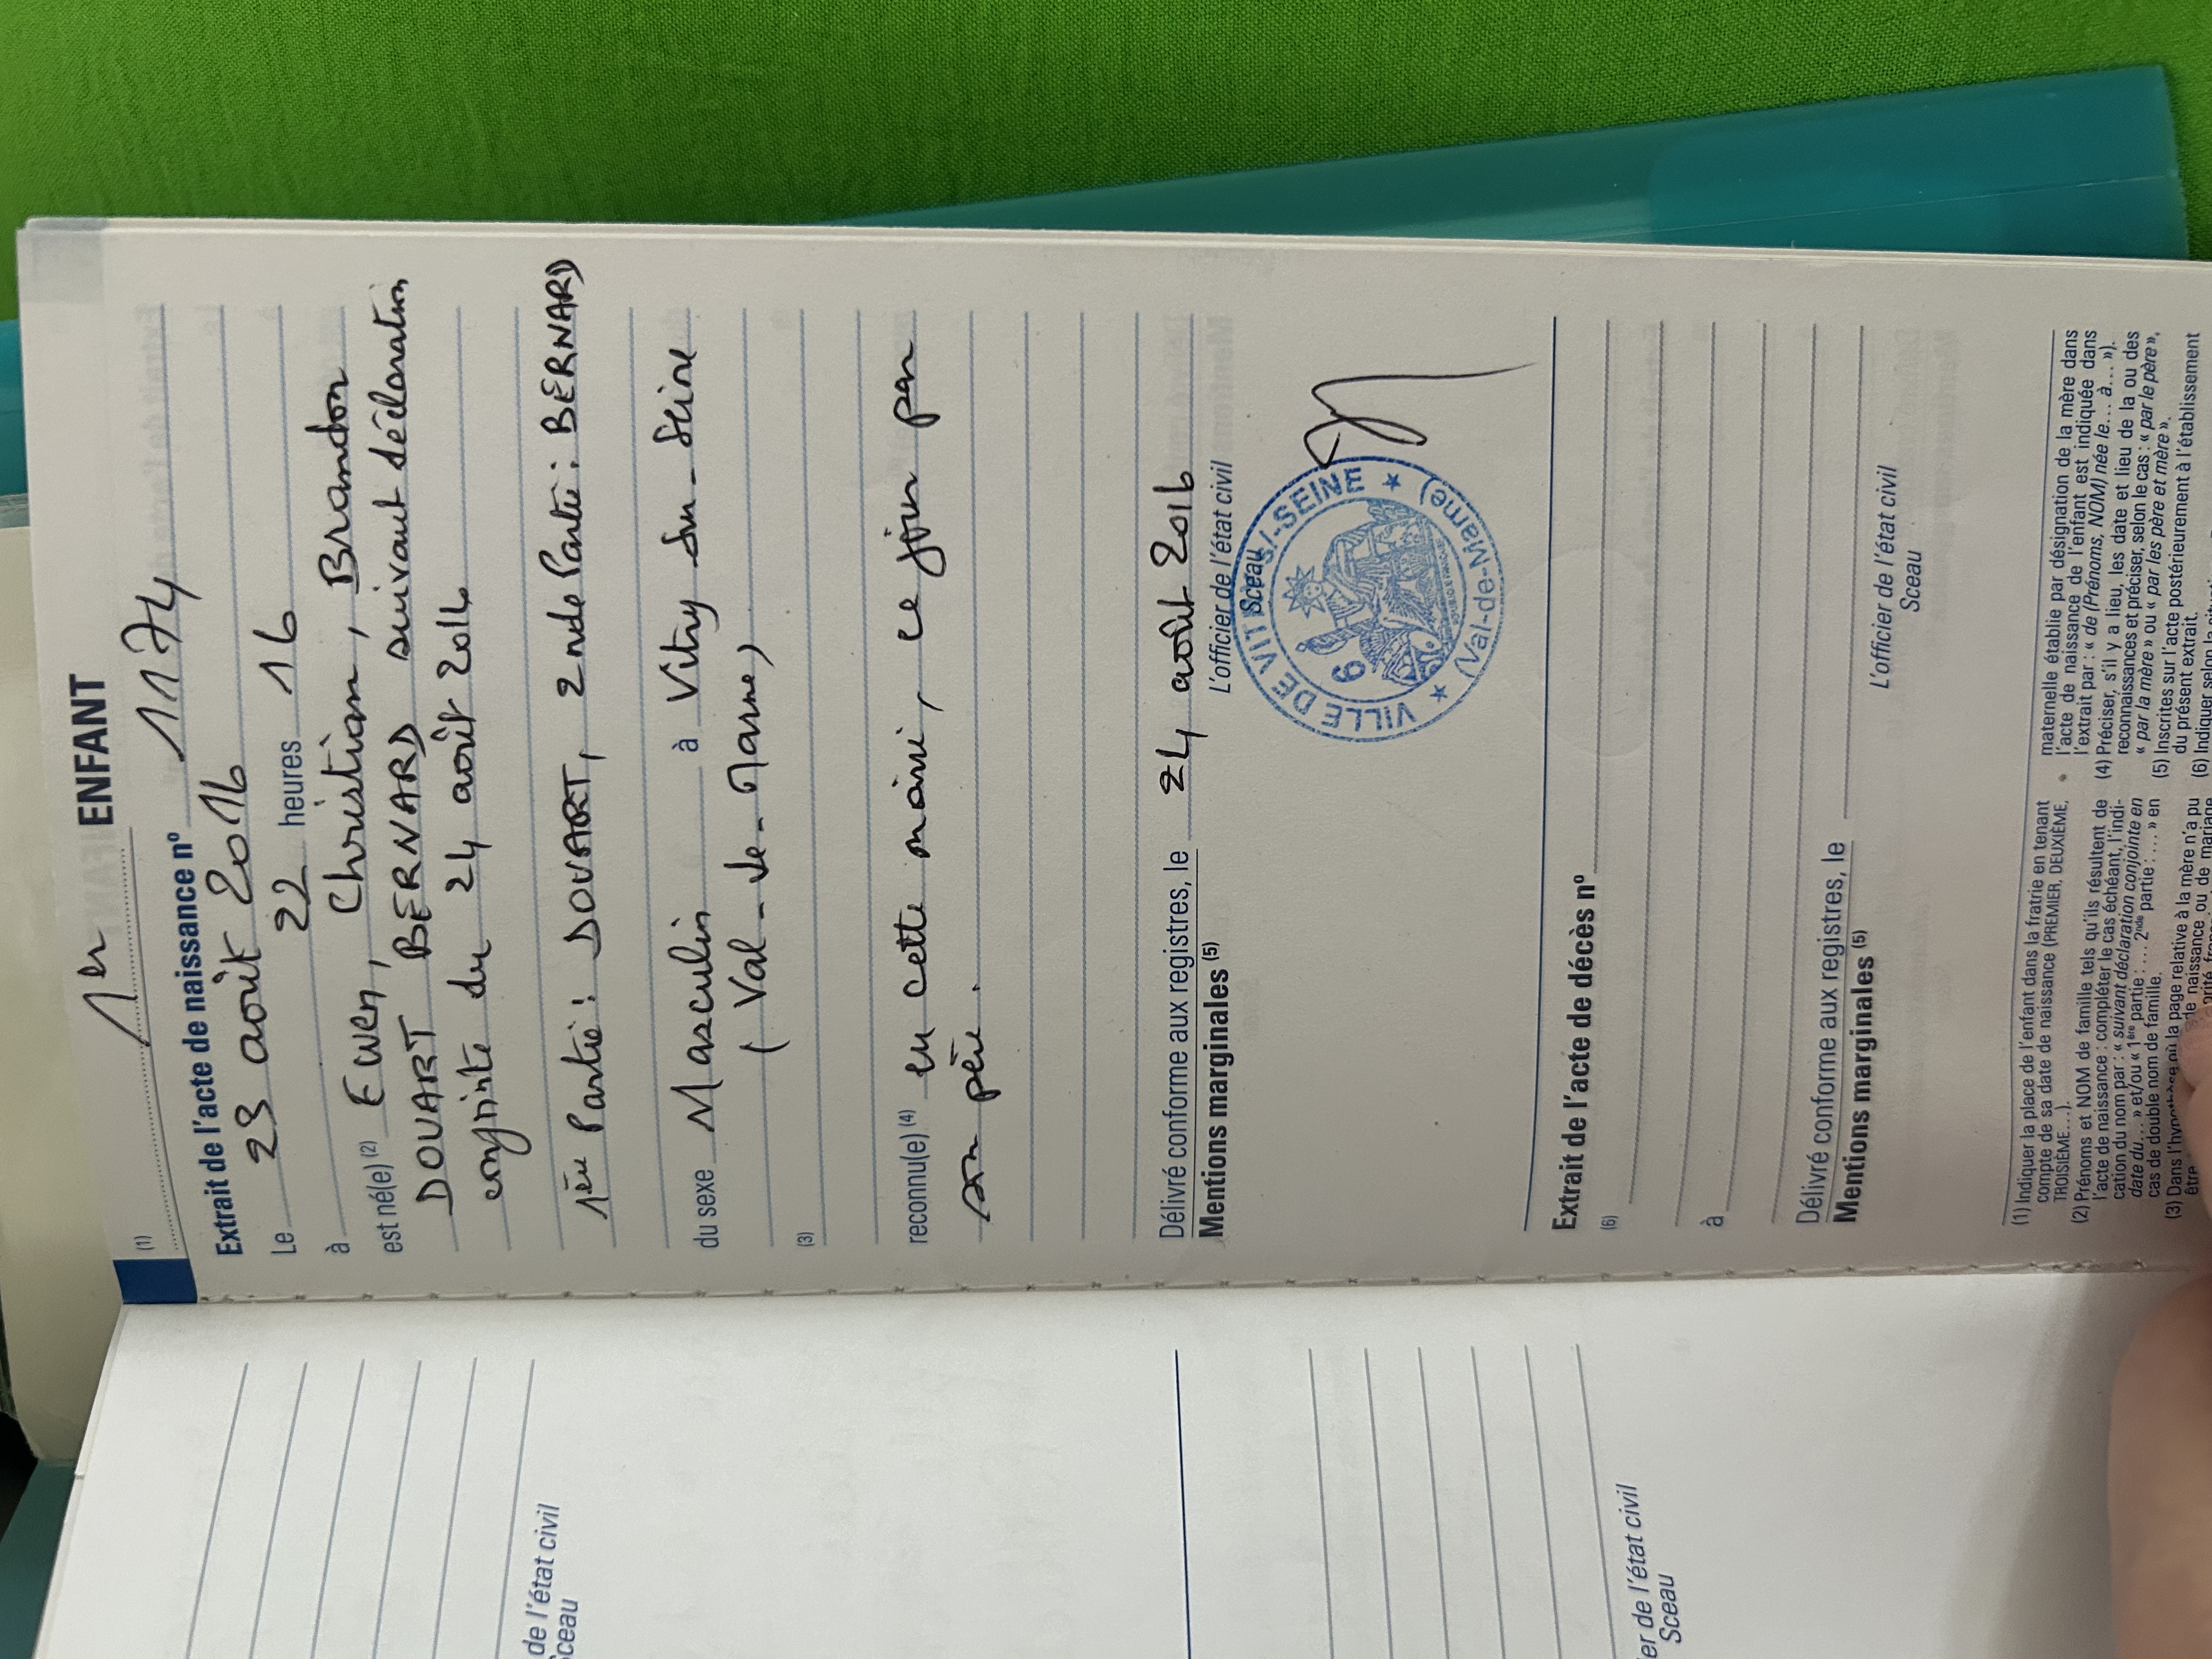 1er ENFANT
(1)
Extrait de l'acte de naissance nº 1174
Le 23 août 2016
à 22 heures 16
est né(e) (2) Ewen, Christian, Brandon
DOUART BERNARD suivant déclaration
conjointe du 24 août 2016
1ère Partie : DOUART, 2nde Partie : BERNARD
du sexe Masculin à Vitry-sur-Seine
(Val-de-Marne)
(3)
reconnu(e) (4) en cette mairie, ce jour par
son père.
Délivré conforme aux registres, le 24 août 2016
Mentions marginales (5)
L'officier de l'état civil
Sceau
VILLE DE VIT S/-SEINE
(Val-de-Marne)
9
Extrait de l'acte de décès nº
(6)
à
Délivré conforme aux registres, le
Mentions marginales (5)
L'officier de l'état civil
Sceau
(1) Indiquer la place de l'enfant dans la fratrie en tenant
compte de sa date de naissance (PREMIER, DEUXIÈME,
TROISIÈME...).
(2) Prénoms et NOM de famille tels qu'ils résultent de
l'acte de naissance : compléter le cas échéant, l'indi-
cation du nom par : « suivant déclaration conjointe en
date du... » et/ou « 1ère partie : ... 2nde partie : ... » en
cas de double nom de famille.
(3) Dans l'hypothèse où la page relative à la mère n'a pu
être
de naissance ou de mariage
maternelle établie par désignation de la mère dans
l'acte de naissance de l'enfant est indiquée dans
l'extrait par : « de (Prénoms, NOM) née le... à... »).
(4) Préciser, s'il y a lieu, les date et lieu de la ou des
reconnaissances et préciser, selon le cas : « par le père »,
« par la mère » ou « par les père et mère ».
(5) Inscrites sur l'acte postérieurement à l'établissement
du présent extrait.
(6) Indiquer selon
de l'état civil
Sceau
er de l'état civil
Sceau